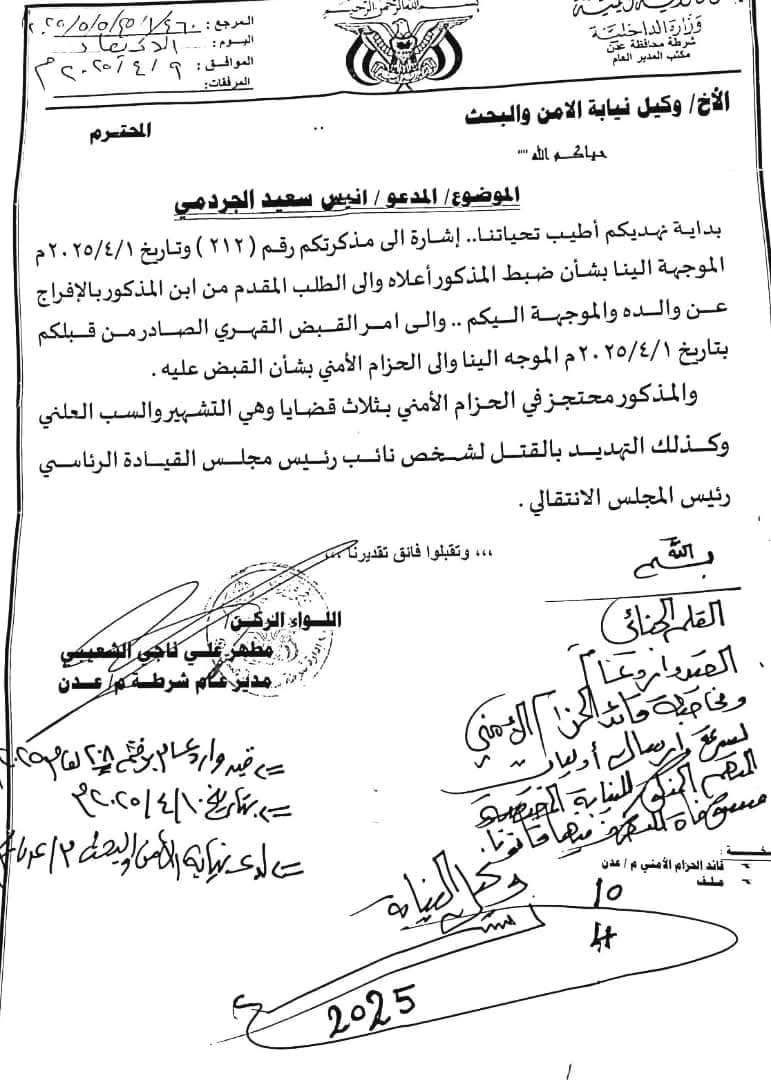 بسم الله الرحمن الرحيم
وزارة الداخلية
شرطة محافظة عدن
مكتب المدير العام
المرجع:
اليوم: الاربعاء
الموافق: ٢٠٢٥/٤/٩م
المرفقات:
الأخ/ وكيل نيابة الامن والبحث
المحترم
حياكم الله ,,,,
الموضوع/ المدعو/ انيس سعيد الجردمي
بداية نهديكم أطيب تحياتنا.. إشارة الى مذكرتكم رقم (٢١٢) وتاريخ ٢٠٢٥/٤/١م
الموجهة الينا بشأن ضبط المذكور أعلاه والى الطلب المقدم من ابن المذكور بالإفراج
عن والده والموجهة اليكم .. والى امر القبض القهري الصادر من قبلكم
بتاريخ ٢٠٢٥/٤/١م الموجه الينا والى الحزام الأمني بشأن القبض عليه .
والمذكور محتجز في الحزام الأمني بثلاث قضايا وهي التشهير والسب العلني
وكذلك التهديد بالقتل لشخص نائب رئيس مجلس القيادة الرئاسي
رئيس المجلس الانتقالي .
,,, وتقبلوا فائق تقديرنا ,,,
اللواء الركن/
مطهر علي ناجي الشعيبي
مدير عام شرطة م/ عدن
بسم الله
القلم الجنائي
وارد عام
ومخاطبة قائد الحزام الأمني
لسرعة إرسال أوليات
المتهم المذكور للنيابة المختصة
للتصرف فيها قانونا
وكيل النيابة
10
4
2025
قيد وارد عام برقم ٢٠٨ لعام ٢٠٢٥م
بتاريخ ٢٠٢٥/٤/١٠م
لدى نيابة الأمن والبحث م/عدن
نسخة :
قائد الحزام الأمني م/ عدن
ملف